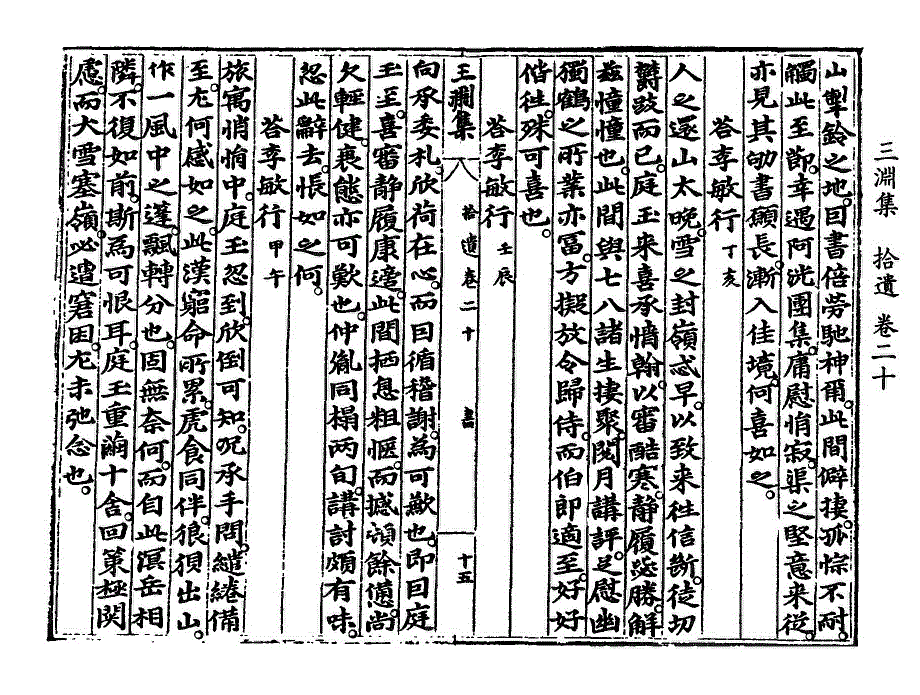 三淵集 拾遺 卷二十
山掣鈴之地因書倍勞馳神爾此間僻棲孤悰不耐
觸此至節幸遇阿洸團集庸慰悄寂渠之堅意來從
亦見其劬書願長漸入佳境何喜如之
答李敏行 丁亥
人之還山太晩雪之封嶺忒早以致來往信斷徒切
鬱跂而已庭玉來喜承惰翰以審酷寒靜履珍勝解
玆憧憧也此間與七八諸生捿聚閱月講評足慰幽
獨鶴之所業亦富方擬放令歸侍而伯郞適至好好
偕往殊可喜也
答李敏行 壬辰
三淵集 拾遺卷二十 書 十五
向承委札欣荷在心而因循稽謝爲可歉也卽因庭
玉至喜審靜履康適此間栖息粗愜而撼頓餘憊尙
欠輕健衰態亦可歎也仲胤同榻兩旬講討頗有味
忽此辭去悵如之何
答李敏行 甲午
旅寓悄悄中庭玉忽到欣倒可知况承手問繾綣備
至尤何感如之此漢窮命所累虎食同伴狼狽出山
作一風中之蓬飄轉分也固無奈何而自此溟岳相
隣不復如前斯爲可恨耳庭玉重繭十舍回策極関
慮而大雪塞嶺必遭窘困尤未弛念也